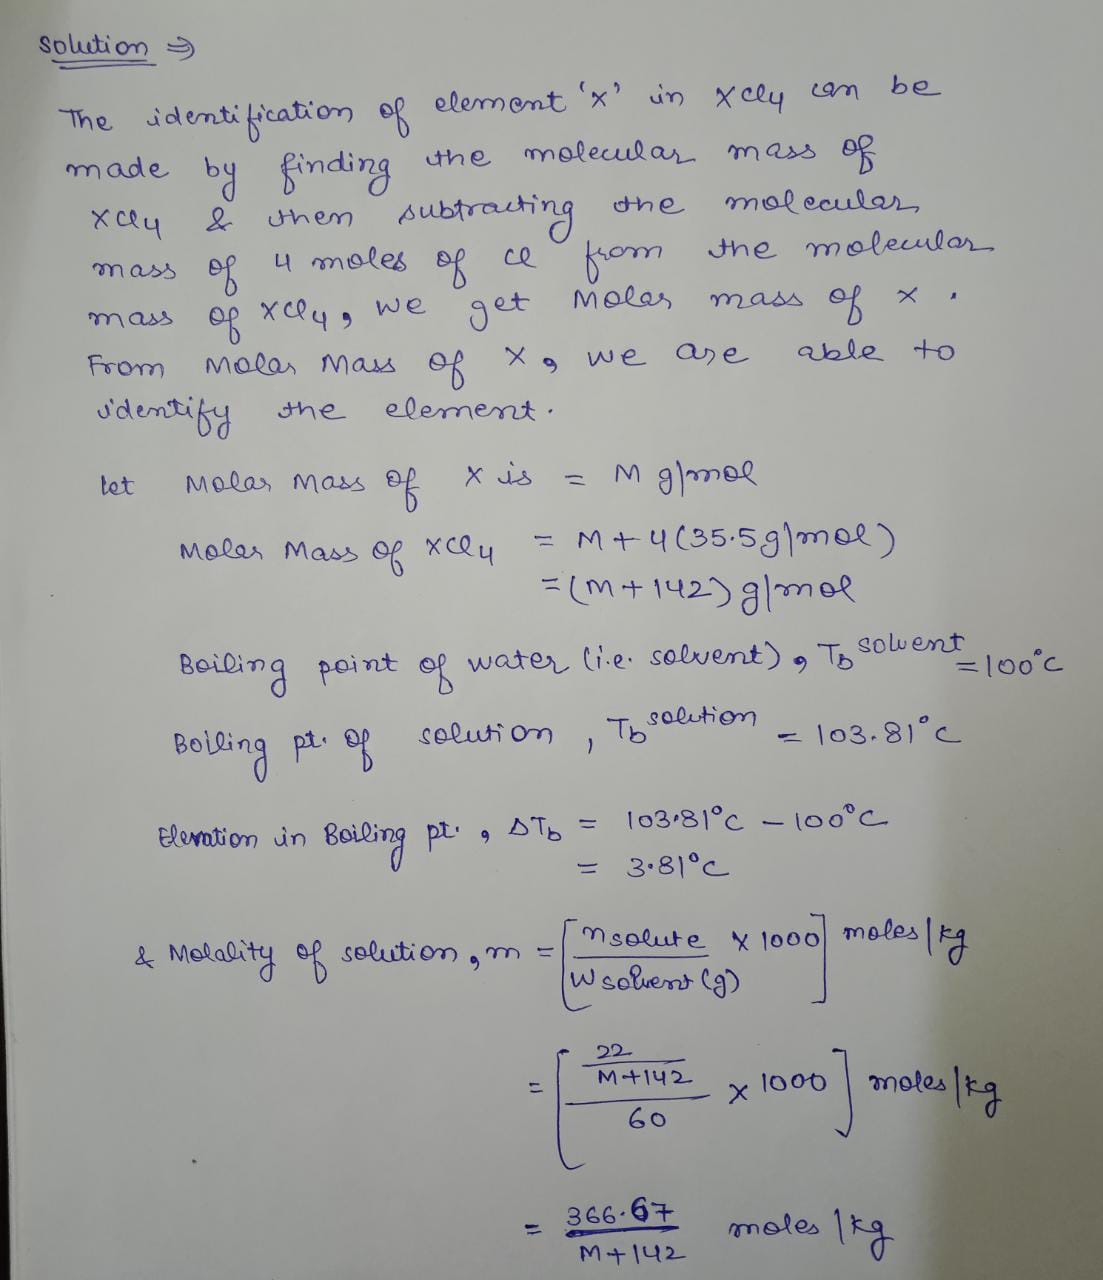 Solution ⇒
The identification of element 'x' in xcl4 can be
made by finding the molecular mass of
xcl4 & then subtracting the molecular
mass of 4 moles of cl from the molecular
mass of xcl4, we get Molar mass of x.
From Molar Mass of x, we are able to
identify the element.
let Molar Mass of x is = M g/mol
Molar Mass of xcl4 = M + 4(35.5g/mol)
= (M + 142) g/mol
Boiling point of water (i.e. solvent), Tb solvent = 100°C
Boiling pt. of solution, Tb solution = 103.81°C
Elevation in Boiling pt., ΔTb = 103.81°C - 100°C
= 3.81°C
& Molality of solution, m = [nsolute / Wsolvent (g) × 1000] moles/kg
= [22 / M+142 / 60 × 1000] moles/kg
= 366.67 / M+142 moles/kg